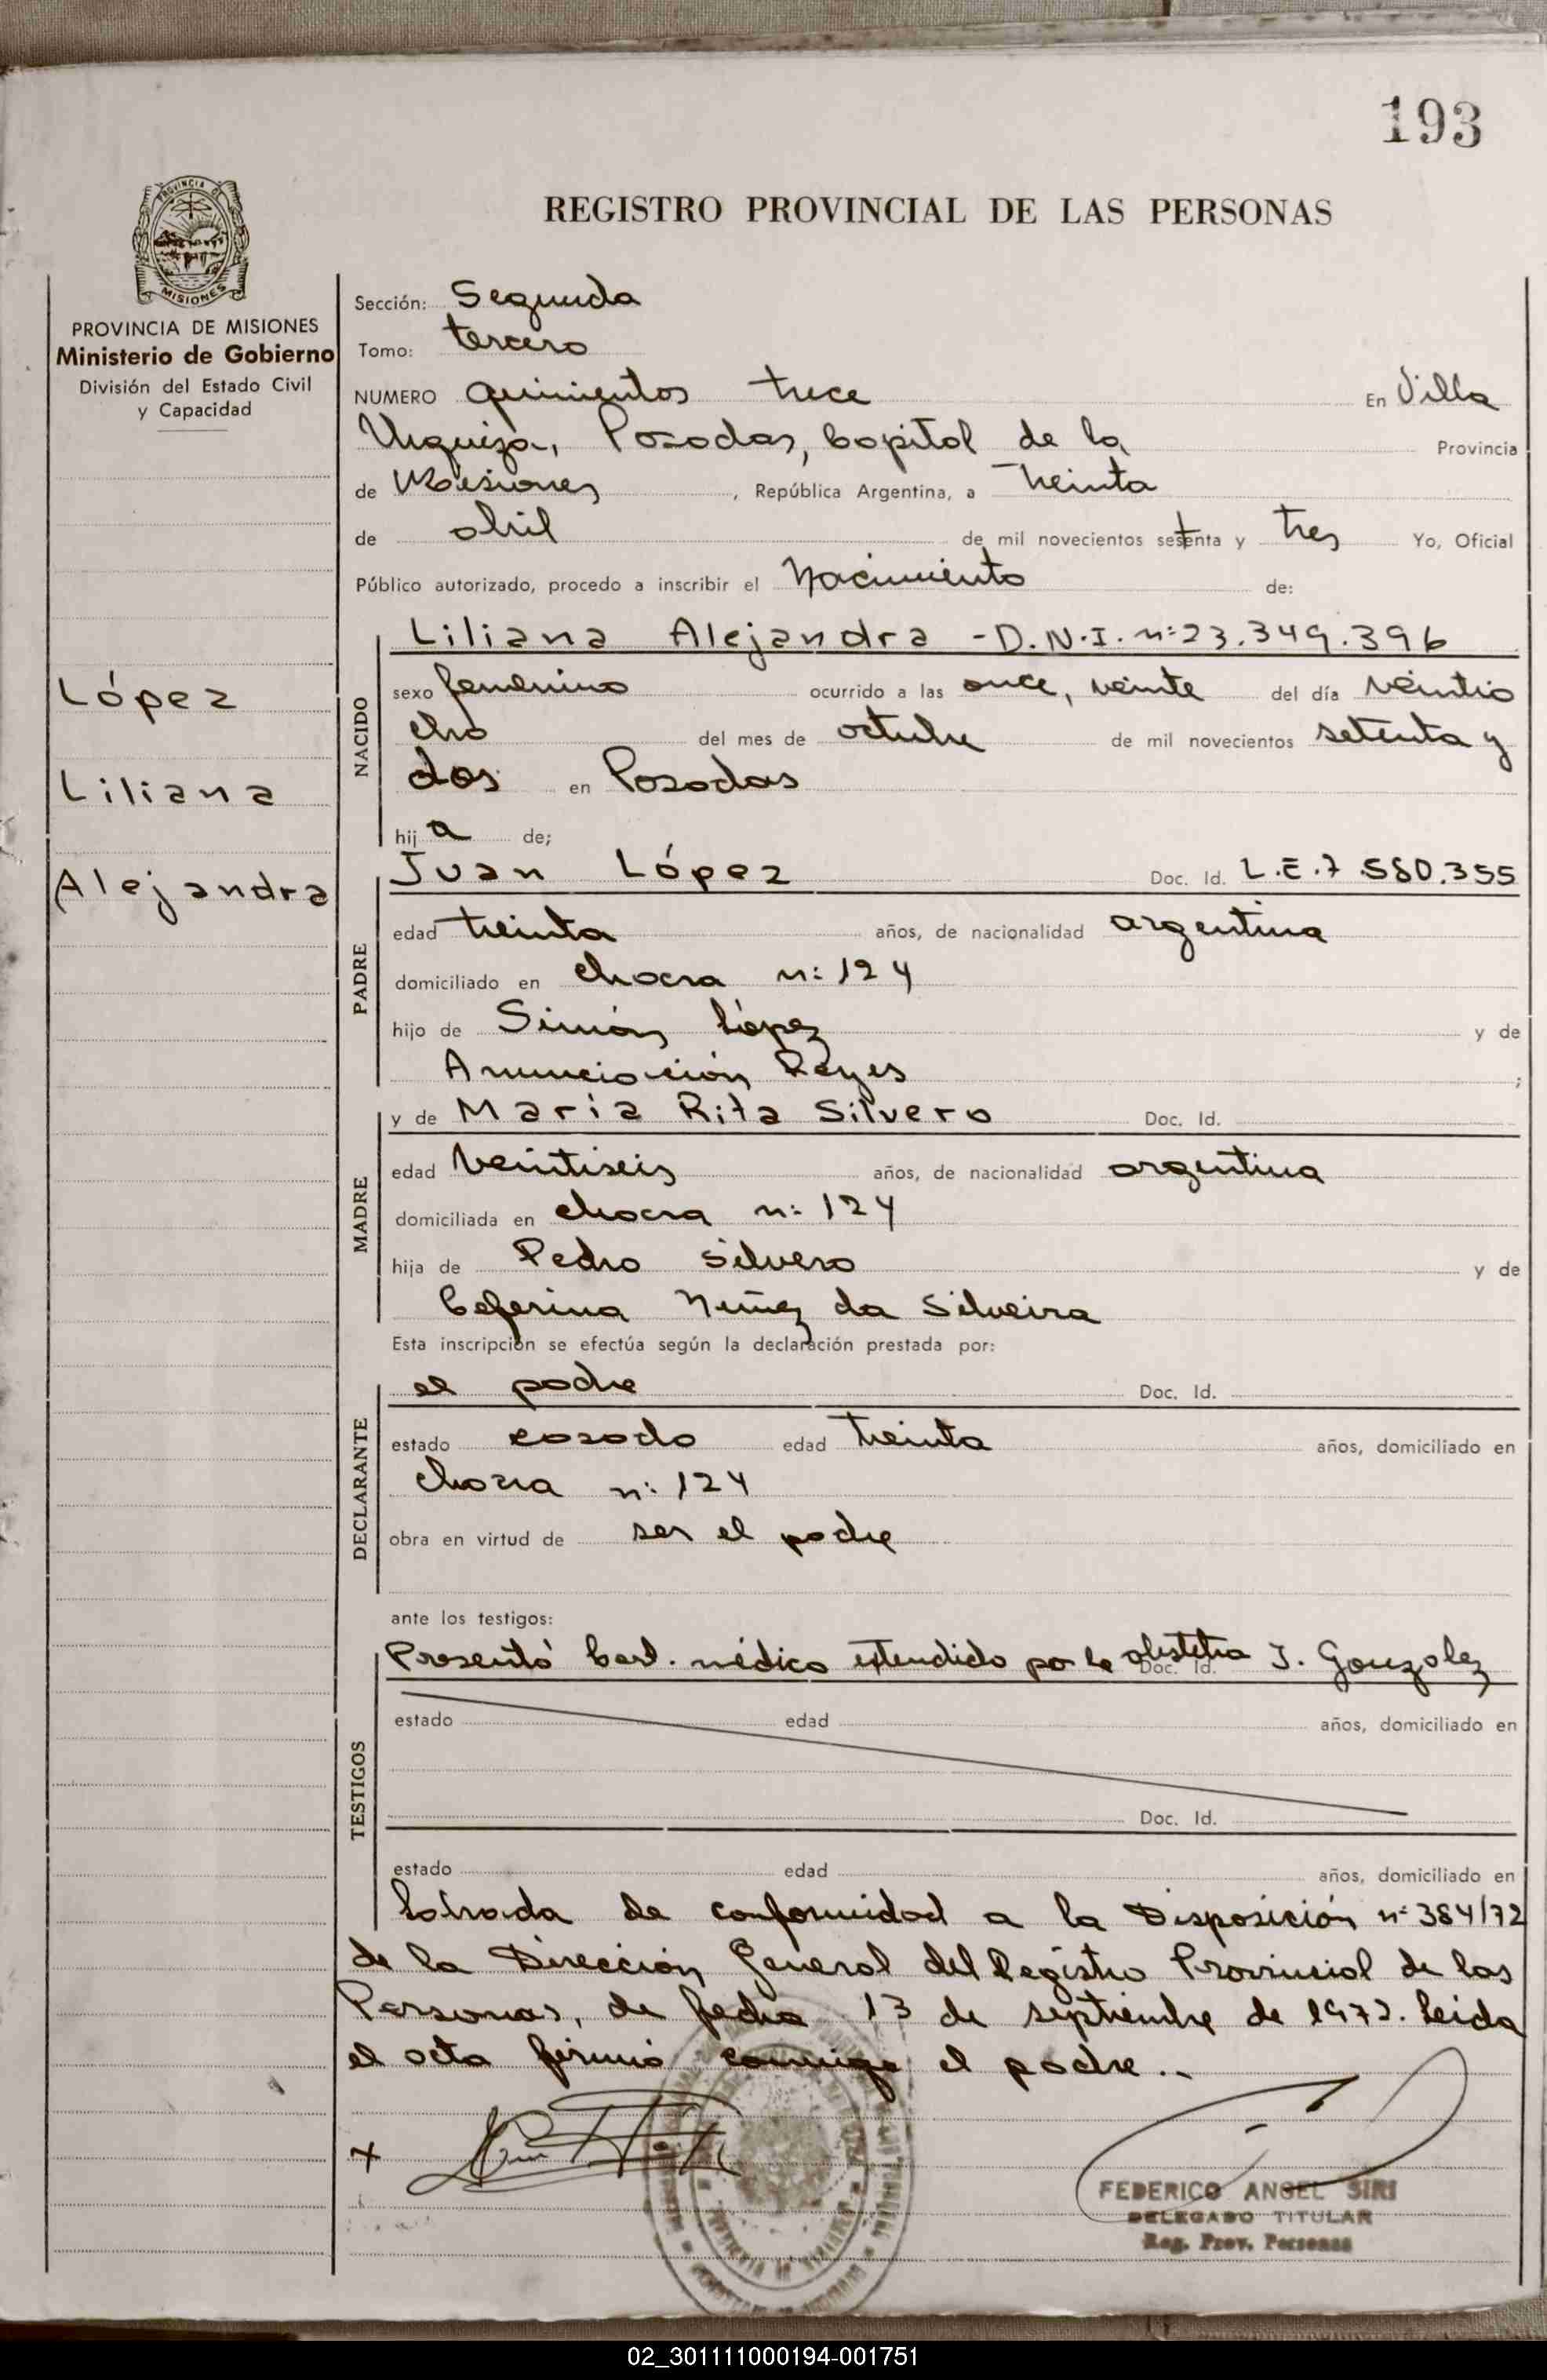 193
REGISTRO PROVINCIAL DE LAS PERSONAS
PROVINCIA DE
MISIONES
PROVINCIA DE MISIONES
Ministerio de Gobierno
División del Estado Civil
y Capacidad
López
Liliana
Alejandra
Sección: Segunda
Tomo: tercero
NUMERO quinientos trece En Villa
Urquiza, Posadas, Capital de la Provincia
de Misiones, República Argentina, a treinta
de abril de mil novecientos setenta y tres Yo, Oficial
Público autorizado, procedo a inscribir el Nacimiento de:
NACIDO
Liliana Alejandra - D.N.I. nº 23.349.396
sexo femenino ocurrido a las once, veinte del día veintio
cho del mes de octubre de mil novecientos setenta y
dos en Posadas
hij a de;
PADRE
Juan López Doc. Id. L.E. 7.580.355
edad treinta años, de nacionalidad argentina
domiciliado en chacra nº 124
hijo de Simón López y de
Anunciación Reyes ;
MADRE
y de María Rita Silvero Doc. Id.
edad veintiseis años, de nacionalidad argentina
domiciliada en chacra nº 124
hija de Pedro Silvero y de
Ceferina Nuñez da Silveira
Esta inscripción se efectúa según la declaración prestada por:
DECLARANTE
el padre Doc. Id.
estado casado edad treinta años, domiciliado en
chacra nº 124
obra en virtud de ser el padre
ante los testigos:
TESTIGOS
Presentó Cert. médico extendido por la obstetra J. Gonzalez
Doc. Id.
estado edad años, domiciliado en
Doc. Id.
estado edad años, domiciliado en
Labrada de conformidad a la Disposición nº 384/72
de la Dirección General del Registro Provincial de las
Personas, de fecha 13 de septiembre de 1972. Leida
el acta firmó conmigo el padre..
x
FEDERICO ANGEL SIRI
DELEGADO TITULAR
Reg. Prov. Personas
02_301111000194-001751